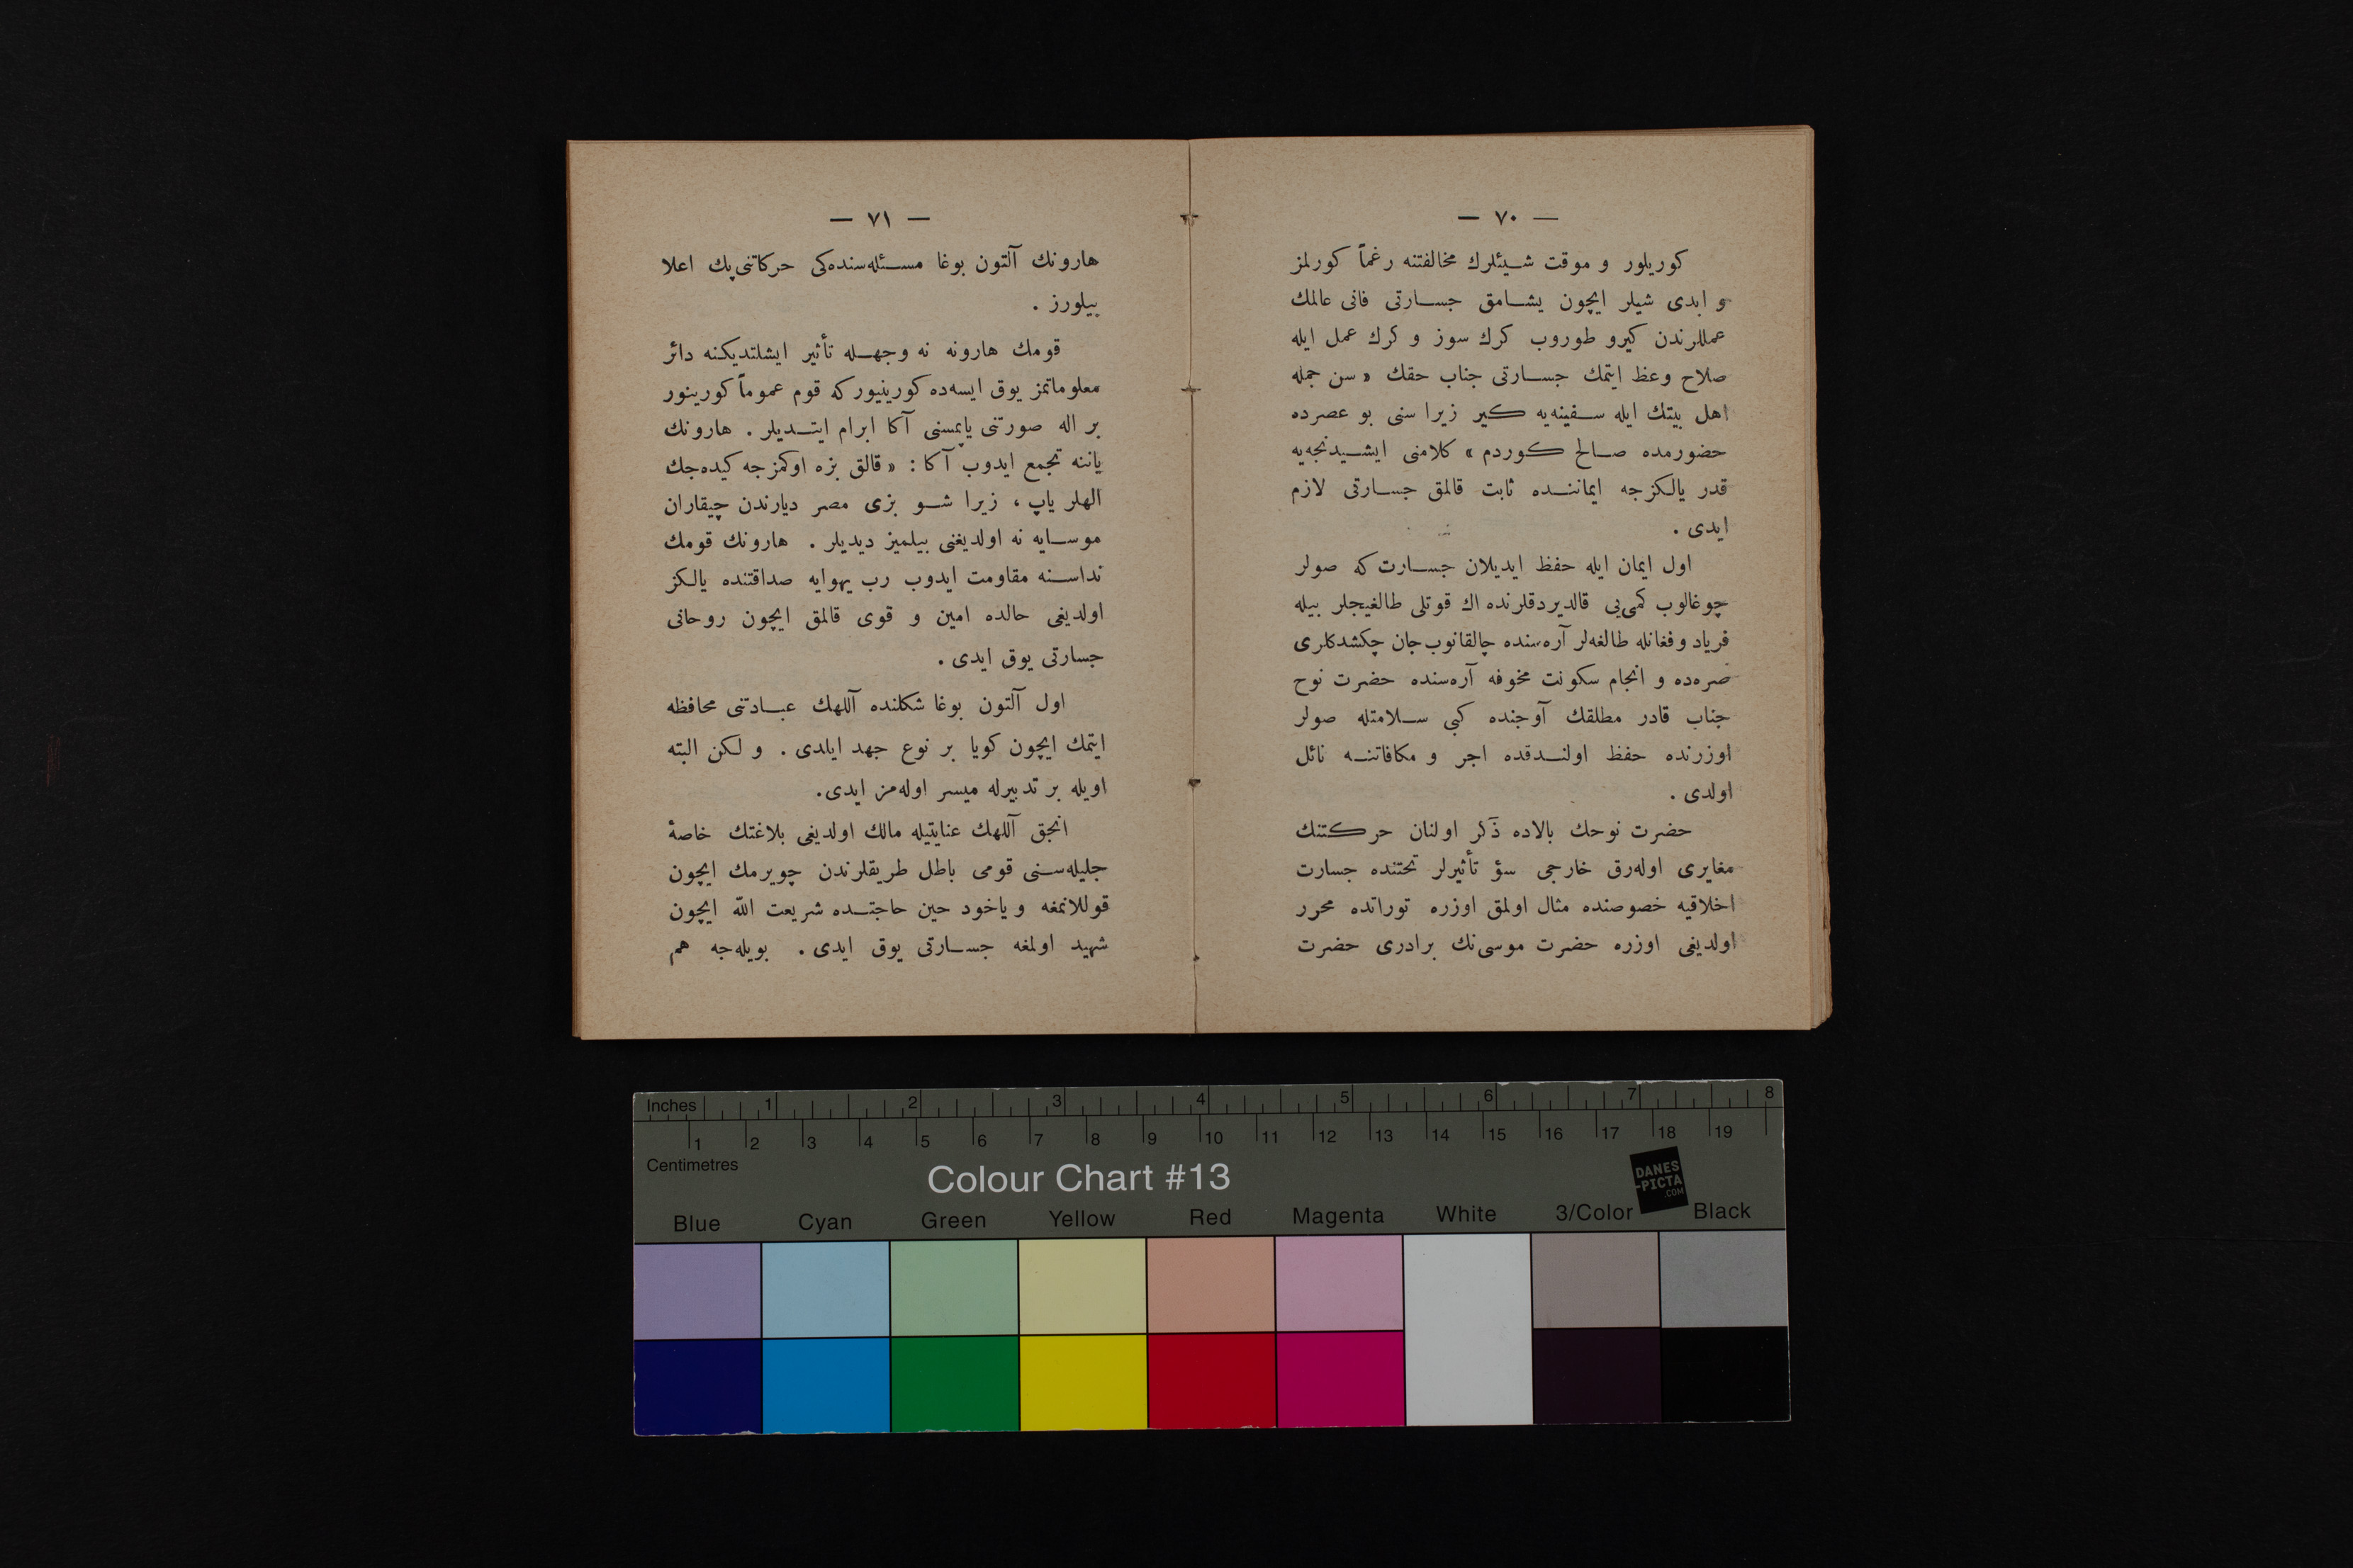 — ٧٠ —
كوريلور و موقت شيئلرك مخالفتنه رغماً كورلمز
و ابدى شيلر ايچون يشامق جسارتى فانى عالمك
عمللرندن كيرو طوروب كرك سوز و كرك عمل ايله
صلاح وعظ ايتمك جسارتى جناب حقك « سن جمله
اهل بيتك ايله سفينه‌يه كير زيرا سنى بو عصرده
حضورمده صالح كوردم » كلامنى ايشيدنجه‌يه
قدر يالكزجه ايماننده ثابت قالمق جسارتى لازم
ايدى .
اول ايمان ايله حفظ ايديلان جسارت كه صولر
چوغالوب كمى‌يى قالديردقلرنده اك قوتلى طالغيجلر بيله
فرياد و فغانله طالغه‌لر آره‌سنده چالقانوب جان چكشدكلرى
صره‌ده و انجام سكونت مخوفه آره‌سنده حضرت نوح
جناب قادر مطلقك آوجنده كبى سلامتله صولر
اوزرنده حفظ اولندقده اجر و مكافاتنه نائل
اولدى .
حضرت نوحك بالاده ذكر اولنان حركتنك
مغايرى اوله‌رق خارجى سؤ تأثيرلر تحتنده جسارت
اخلاقيه خصوصنده مثال اولمق اوزره توراتده محرر
اولديغى اوزره حضرت موسى‌نك برادرى حضرت
— ٧١ —
هارونك آلتون بوغا مسئله‌سنده‌كى حركاتنى پك اعلا
بيلورز .
قومك هارونه نه وجهله تأثير ايشلتديكنه دائر
معلوماتمز يوق ايسه‌ده كورينيور كه قوم عموماً كورينور
بر اله صورتنى ياپمسنى آكا ابرام ايتديلر . هارونك
ياننه تجمع ايدوب آكا : « قالق بزه اوكمزجه كيده‌جك
الهلر ياپ ، زيرا شو بزى مصر ديارندن چيقاران
موسايه نه اولديغنى بيلميز ديديلر . هارونك قومك
نداسنه مقاومت ايدوب رب يهوايه صداقتنده يالكز
اولديغى حالده امين و قوى قالمق ايچون روحانى
جسارتى يوق ايدى .
اول آلتون بوغا شكلنده آللهك عبادتنى محافظه
ايتمك ايچون كويا بر نوع جهد ايلدى . و لكن البته
اويله بر تدبيرله ميسر اوله‌مز ايدى .
انجق آللهك عنايتيله مالك اولديغى بلاغتك خاصهٔ
جليله‌سنى قومى باطل طريقلرندن چويرمك ايچون
قوللانمغه و ياخود حين حاجتده شريعت الله ايچون
شهيد اولمغه جسارتى يوق ايدى . بويله‌جه هم
Inches 1 2 3 4 5 6 7 8
1 2 3 4 5 6 7 8 9 10 11 12 13 14 15 16 17 18 19
Centimetres
Colour Chart #13
DANES
-PICTA
.COM
Blue Cyan Green Yellow Red Magenta White 3/Color Black